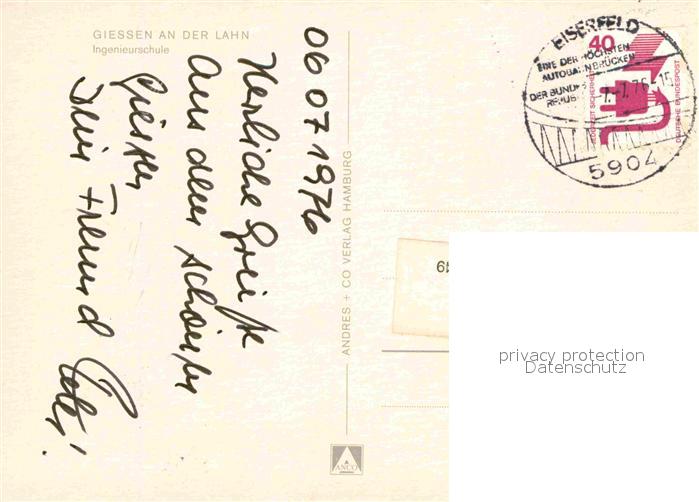 GIESSEN AN DER LAHN
Ingenieurschule
06 07 1976
Herzliche Grüße
Aus dem schönen
Giessen
Dein Freund Peter!
ANDRES + CO VERLAG HAMBURG
ANCO
EISERFELD
EINE DER HÖCHSTEN
AUTOBAHNBRÜCKEN
DER BUNDES
REPUB
-7.-7.76-15
5904
40
JEDERZEIT SICHERHEIT
DEUTSCHE BUNDESPOST
49
privacy protection
Datenschutz